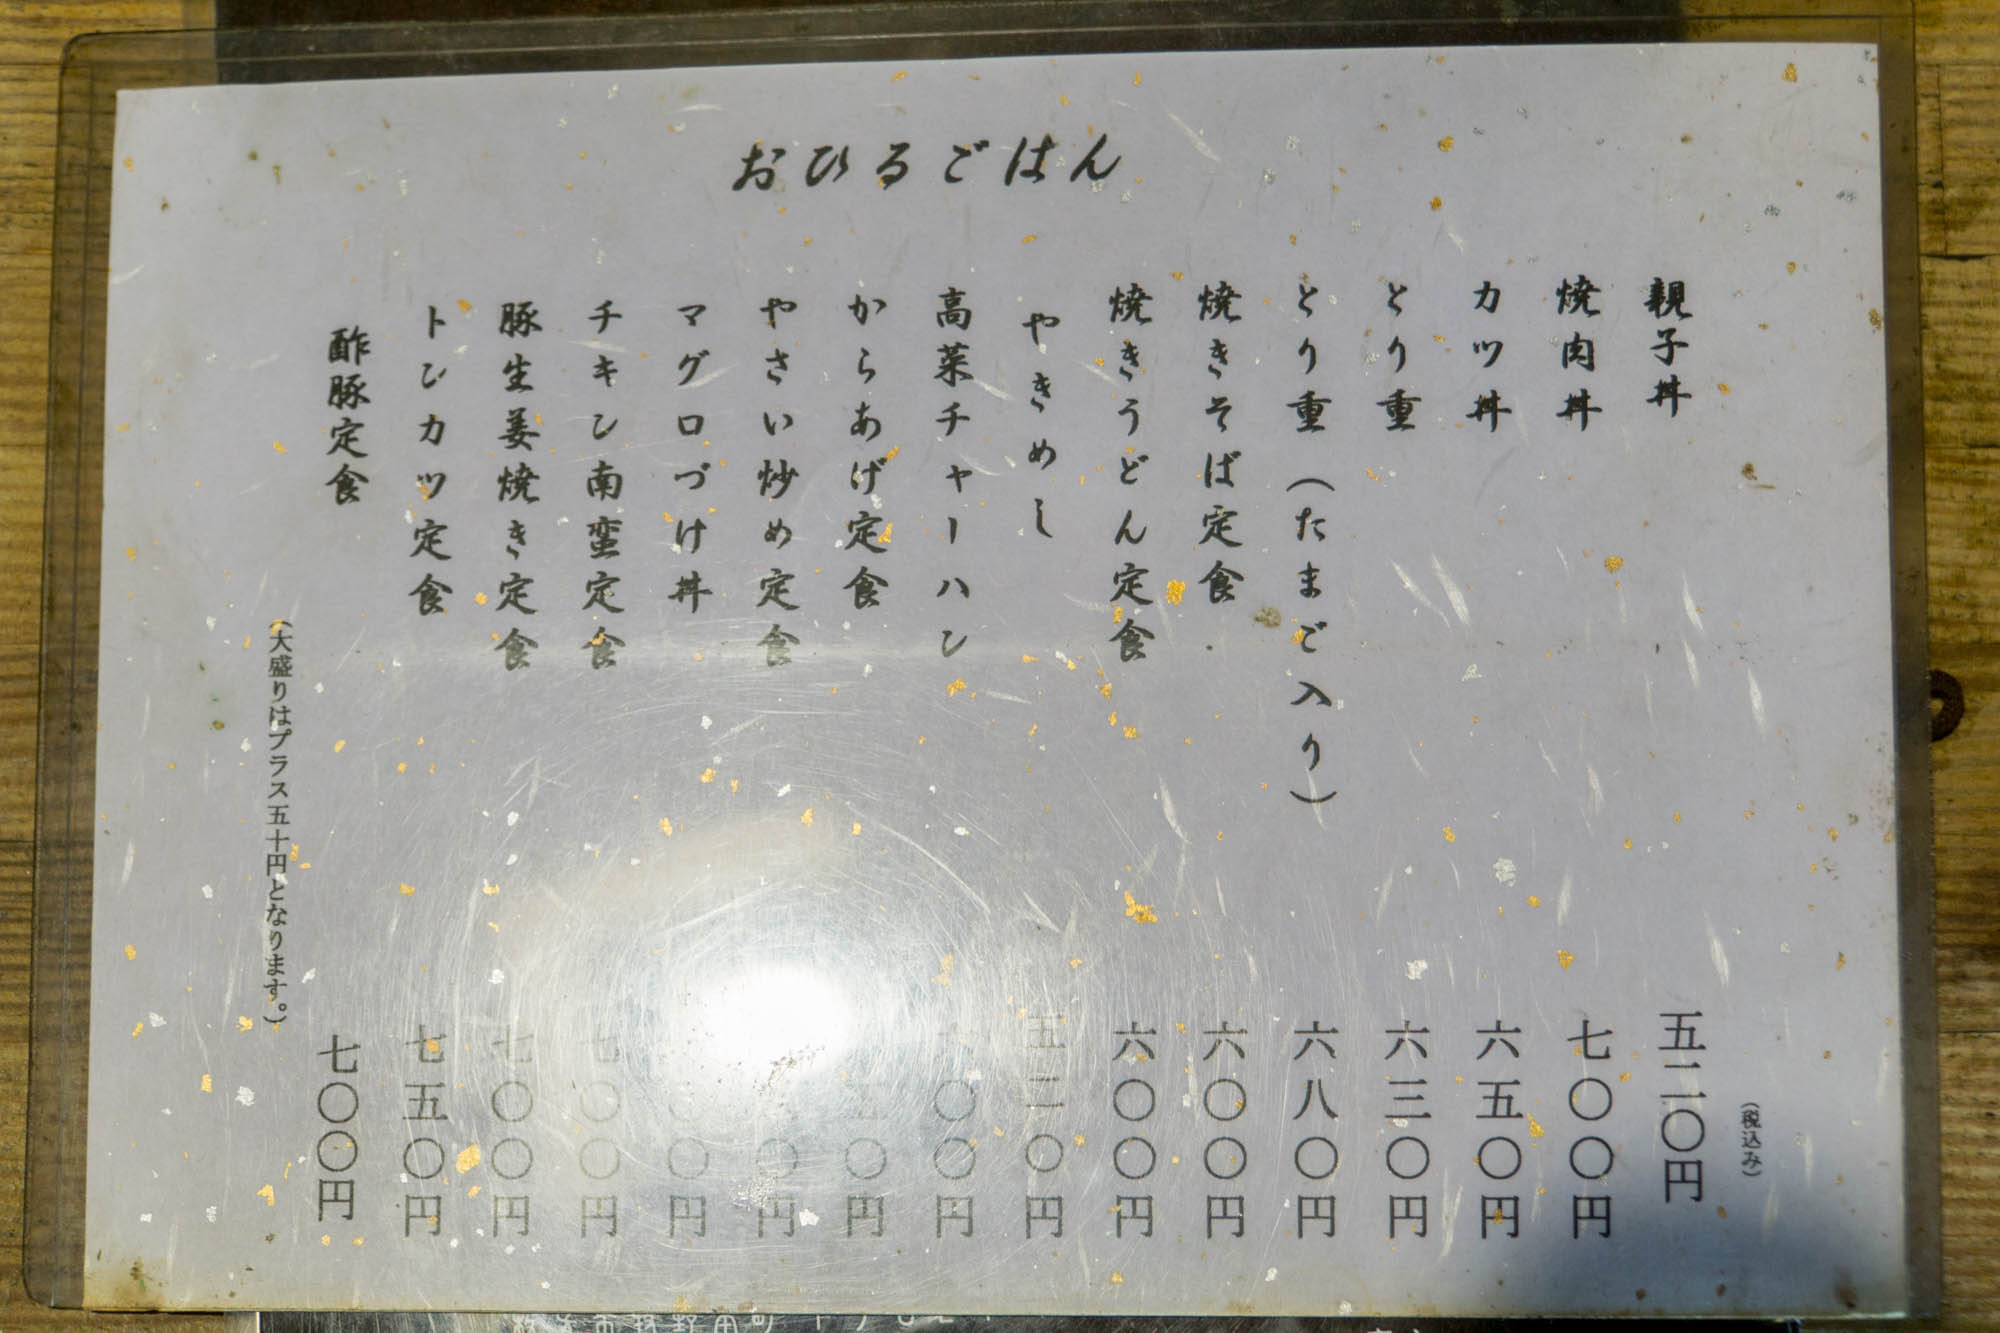 おひるごはん
(税込み)
親子丼 五二〇円
焼肉丼 七〇〇円
カツ丼 六五〇円
とり重 六三〇円
とり重(たまご入り) 六八〇円
焼きそば定食 六〇〇円
焼きうどん定食 六〇〇円
やきめし 五二〇円
高菜チャーハン 〇〇円
からあげ定食 〇円
やさい炒め定食 〇円
マグロづけ丼 〇〇円
チキン南蛮定食 七〇〇円
豚生姜焼き定食 七〇〇円
トンカツ定食 七五〇円
酢豚定食 七〇〇円
(大盛りはプラス五十円となります。)